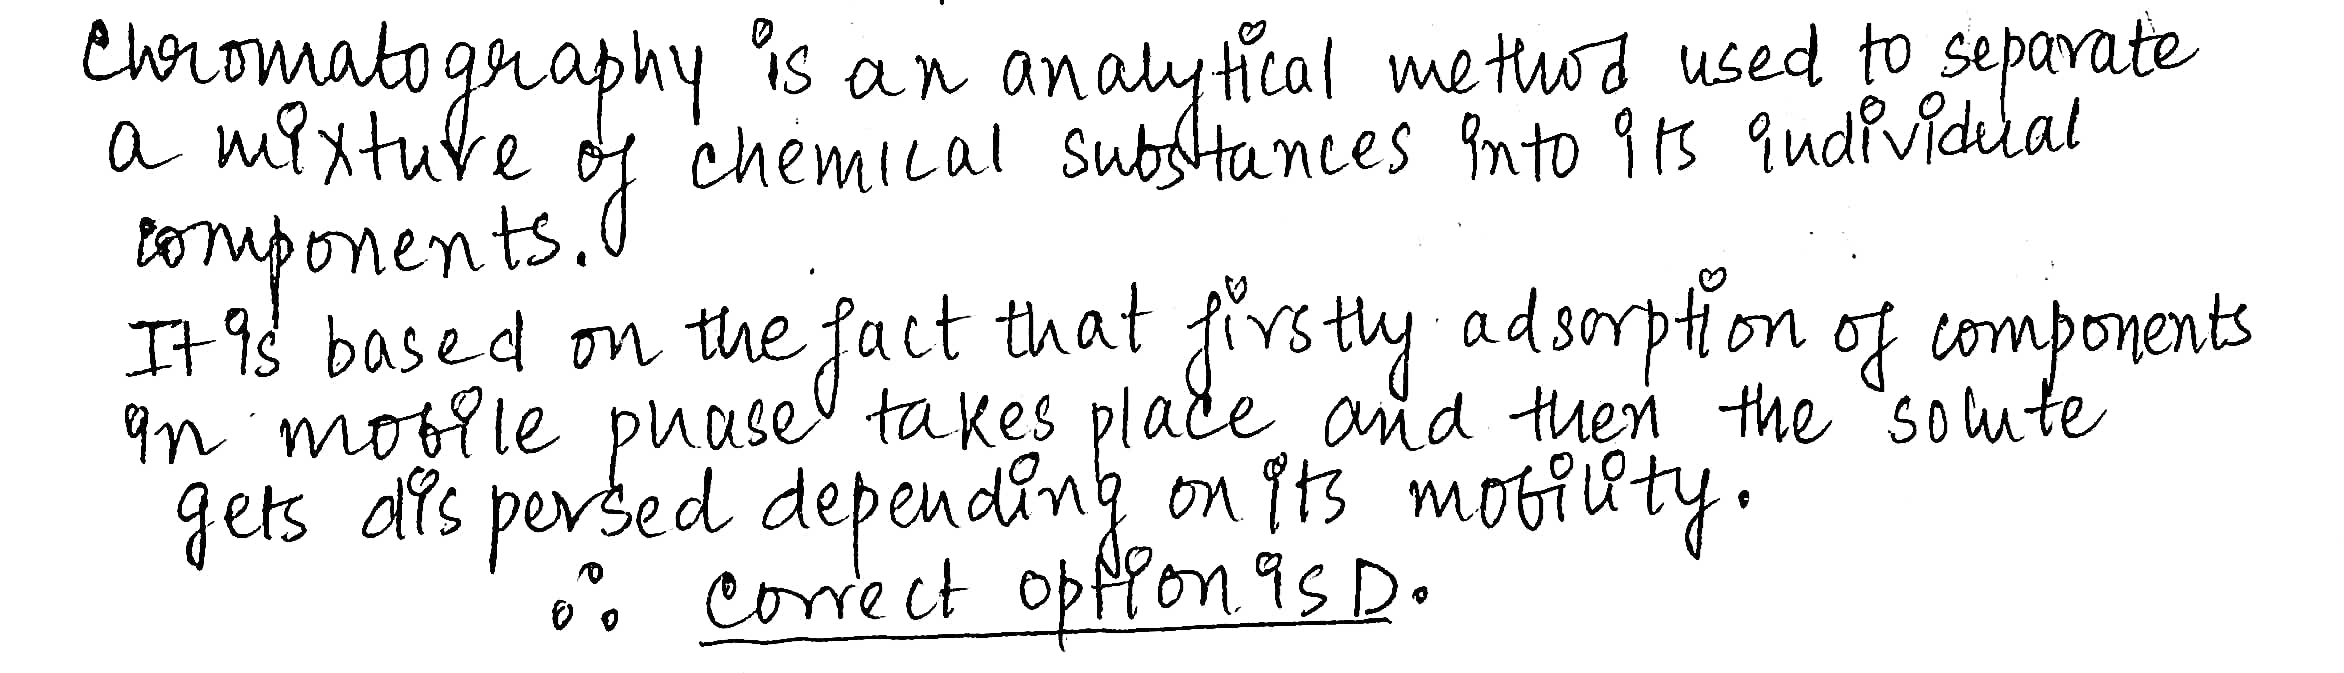 Chromatography is an analytical method used to separate
a mixture of chemical substances into its individual
components.
It is based on the fact that firstly adsorption of components
in mobile phase takes place and then the solute
gets dispersed depending on its mobility.
∴ Correct option is D.